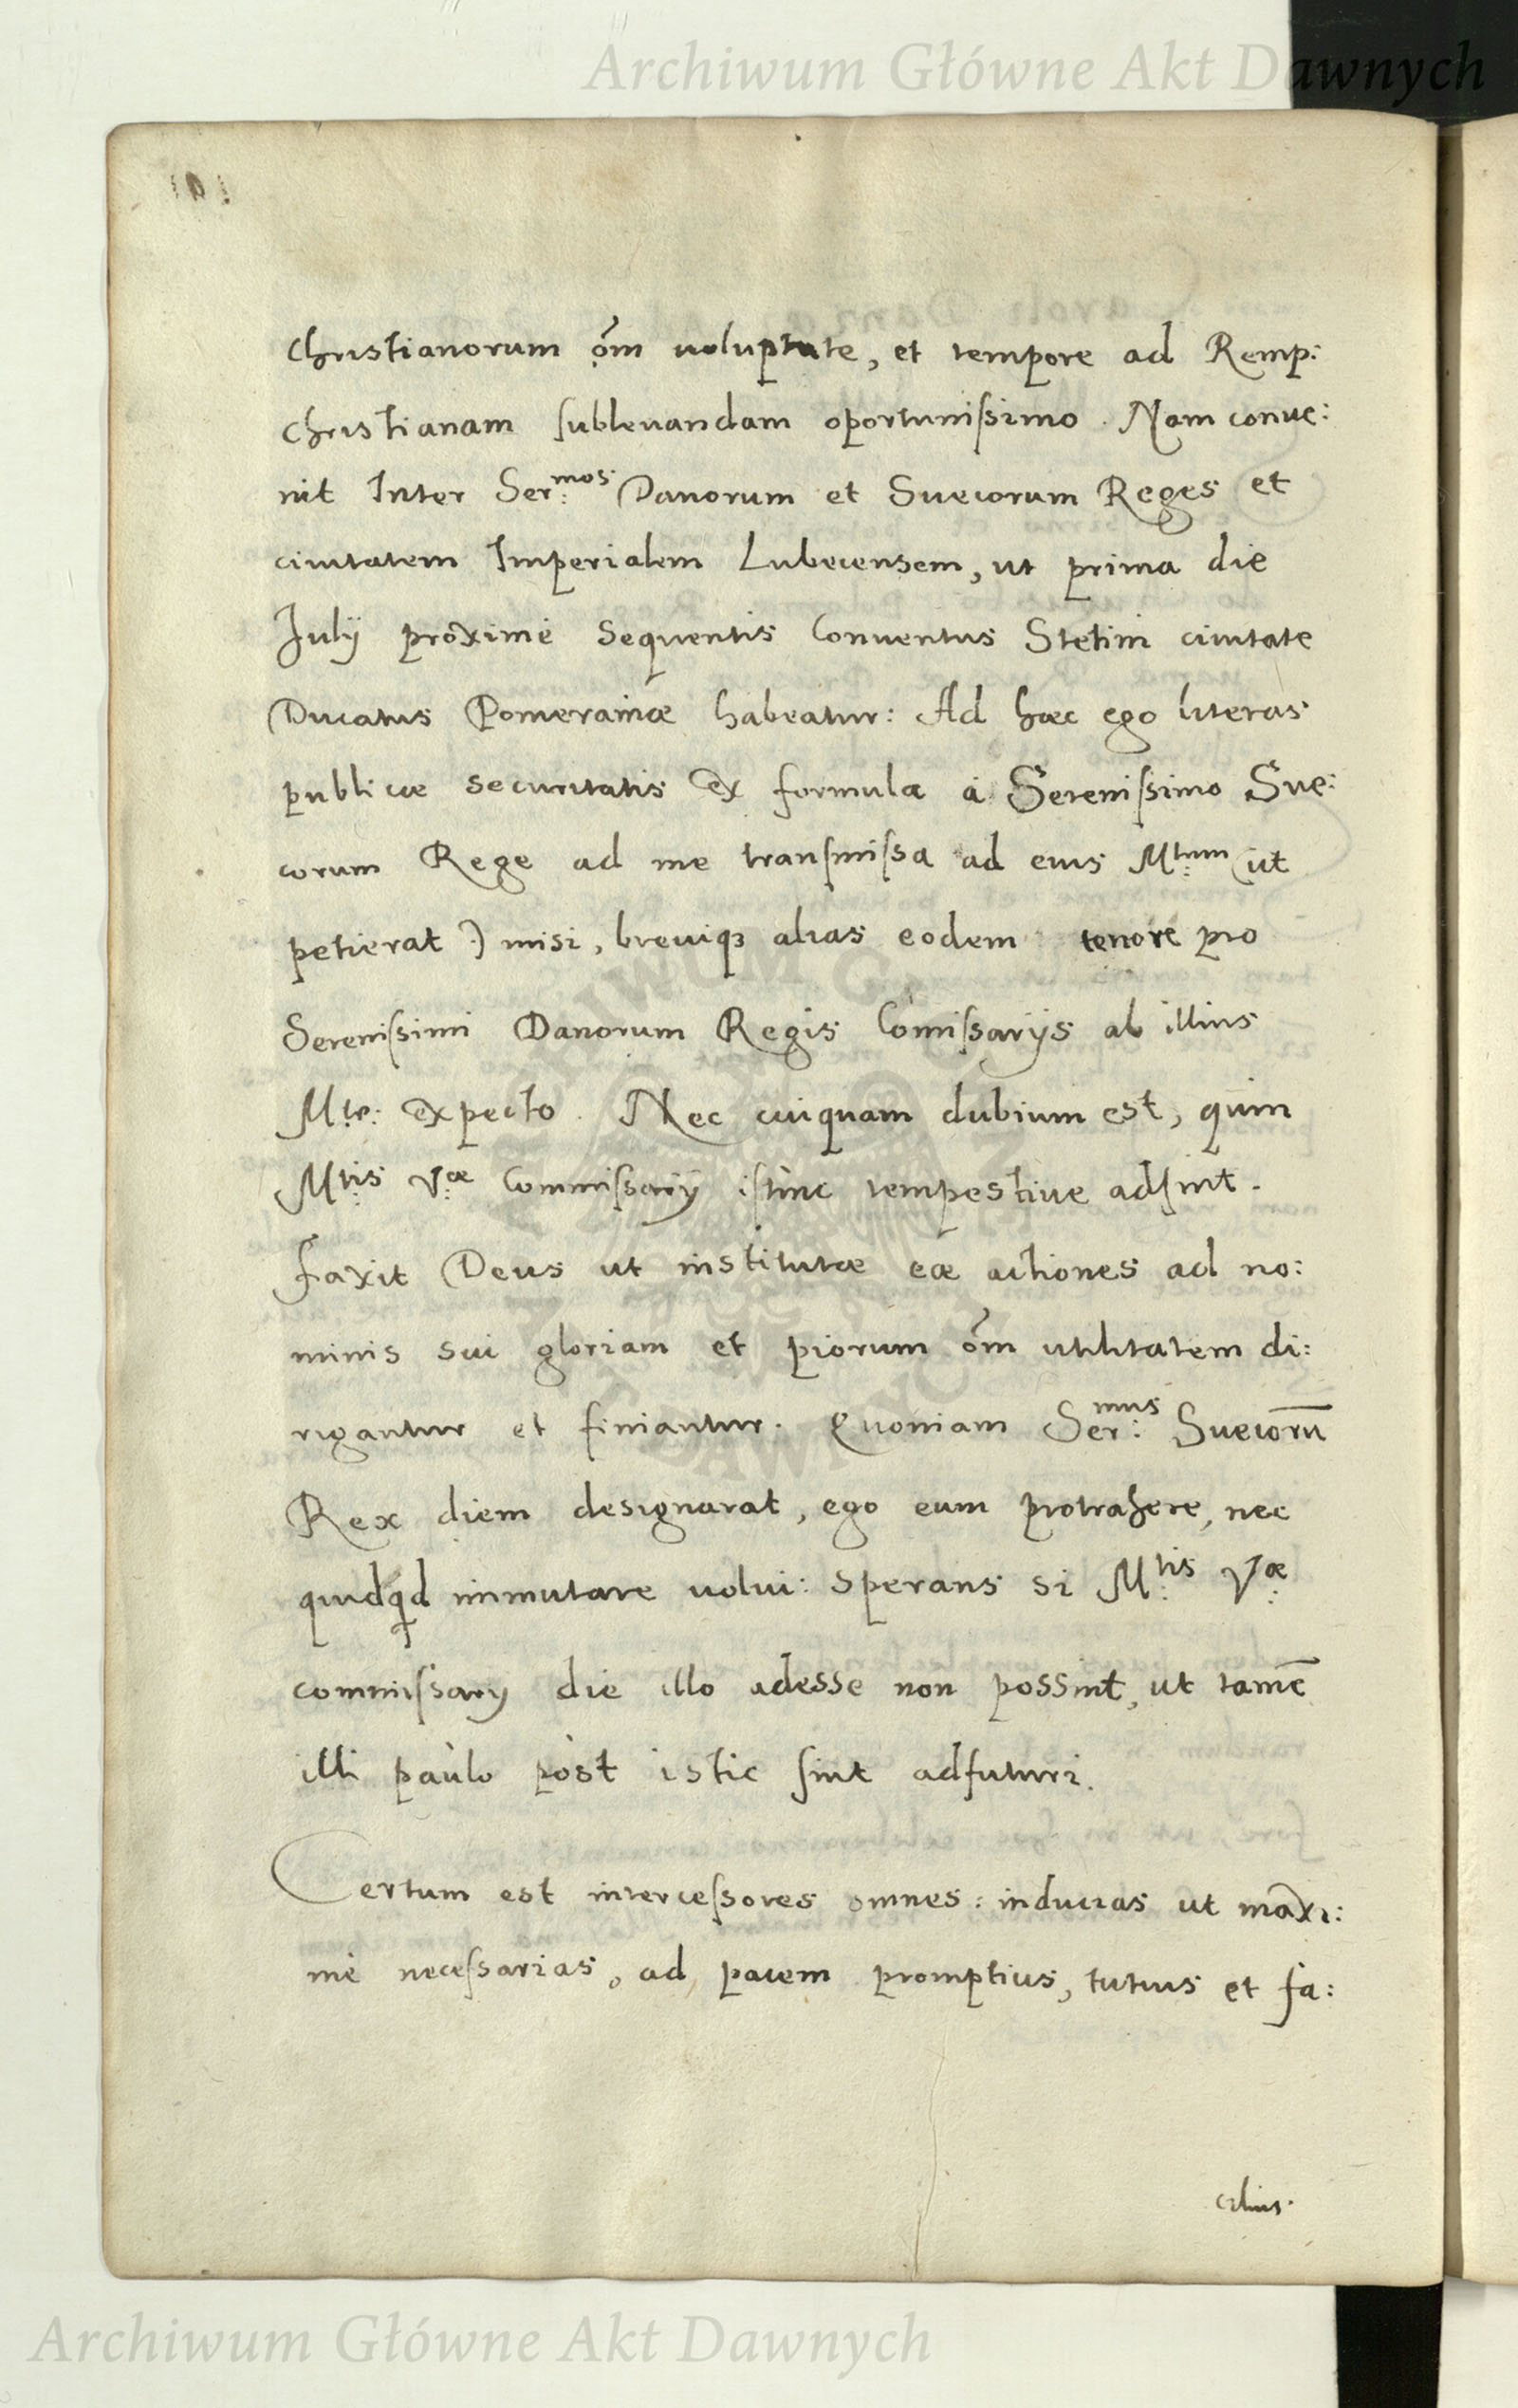 Archiwum Główne Akt Dawnych
Christianorum om̃ uoluptate, et tempore ad Remp:
Christianam subleuandam oportunissimo. Nam conue:
nit Inter Ser:mos Danorum et Suecorum Reges et
ciuitatem Imperialem Lubecensem, ut prima die
Julij proximè sequentis Conuentus Stetini ciuitate
Ducatus Pomeraniæ habeatur: Ad hæc ego literas
publicæ securitatis ex formula à Serenissimo Sue:
corum Rege ad me transmissa ad eius M:tem (ut
petierat) misi, breuiq3 alias eodem tenore pro
Serenissimi Danorum Regis Comissarijs ab illius
M:te: expecto. Nec cuiquam dubium est, quin
M:tis V:æ Commissarij istinc tempestiue adsint.
Faxit Deus ut institutæ eæ actiones ad no:
minis sui gloriam et piorum om̃ utilitatem di:
rigantur et finiantur. Quoniam Ser:mus Suecorũ
Rex diem designarat, ego eum protrahere, nec
quidqd immutare uolui: sperans si M:tis V:æ
commissarij die illo adesse non possint, ut tamẽ
illi paulò pòst istic sint adfuturi.
Certum est intercessores omnes: inducias ut maxi:
mè necessarias, ad pacem promptius, tutius et fa:
cilius.
Archiwum Główne Akt Dawnych